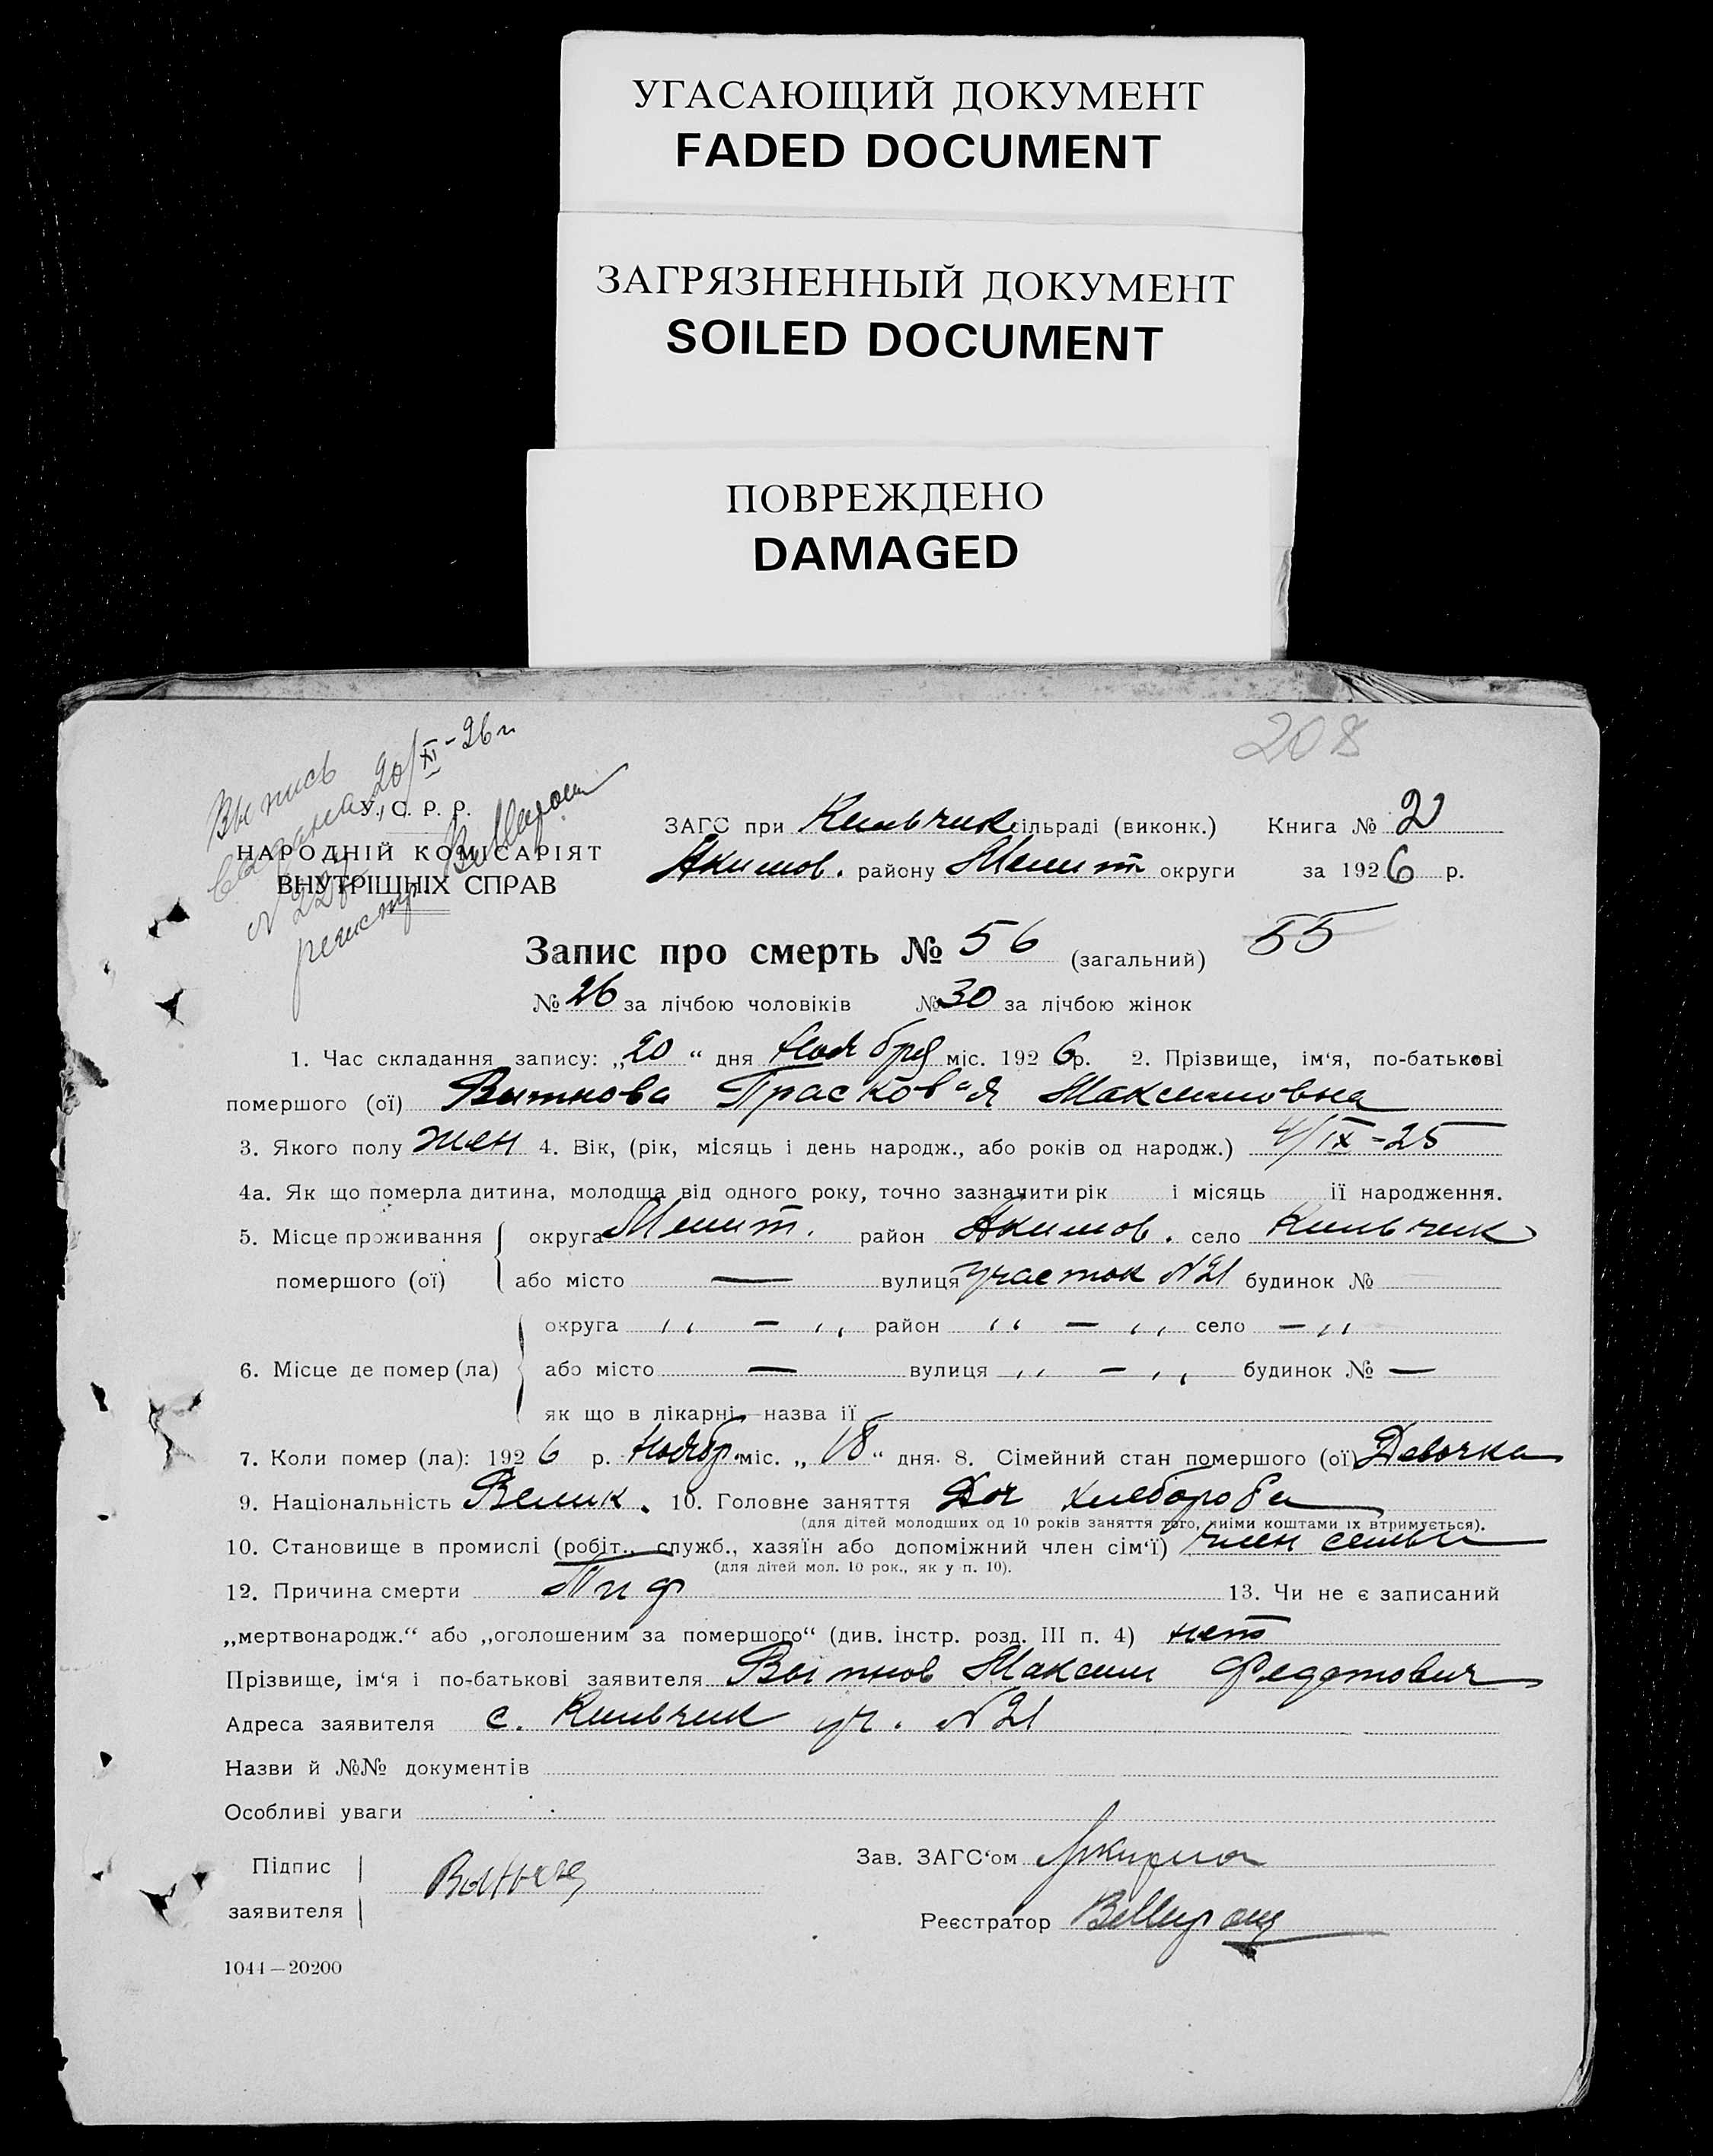 УГАСАЮЩИЙ ДОКУМЕНТ
FADED DOCUMENT
ЗАГРЯЗНЕННЫЙ ДОКУМЕНТ
SOILED DOCUMENT
ПОВРЕЖДЕНО
DAMAGED
208
Выпись
20/XI-26 г
У. С. Р. Р.
НАРОДНІЙ КОМІСАРІЯТ
ВНУТРІШНІХ СПРАВ
ЗАГС при Кильчик сільраді (виконк.) Книга № 2
Акимов. району Мелит округи за 1926 р.
Запис про смерть № 56 (загальний) 55
№ 26 за лічбою чоловіків № 30 за лічбою жінок
1. Час складання запису: „20“ дня Ноября міс. 1926 р. 2. Прізвище, ім‘я, по-батькові
помершого (ої) Вытнова Прасковья Максимовна
3. Якого полу жен 4. Вік, (рік, місяць і день народж., або років од народж.) 4/IX-25
4а. Як що померла дитина, молодша від одного року, точно зазначити рік і місяць її народження.
5. Місце проживання округа Мелит. район Акимов. село Кильчик
помершого (ої) або місто — вулиця участок №21 будинок №
округа „ — „ район „ — „ село — „
6. Місце де помер (ла) або місто — вулиця „ — „ будинок № —
як що в лікарні—назва її
7. Коли помер (ла): 1926 р. Ноябр. міс. „18“ дня. 8. Сімейний стан помершого (ої) Девочка
9. Національність Велик. 10. Головне заняття Доч хлебороба
(для дітей молодших од 10 років заняття того, чиїми коштами їх втримується).
10. Становище в промислі (робіт., служб., хазяїн або допоміжний член сім‘ї) член семьи
(для дітей мол. 10 рок., як у п. 10).
12. Причина смерти Тиф 13. Чи не є записаний
„мертвонародж.“ або „оголошеним за помершого“ (див. інстр. розд. III п. 4) нет
Прізвище, ім‘я і по-батькові заявителя Вытнов Максим Федотович
Адреса заявителя с. Кильчик уч. №21
Назви й №№ документів
Особливі уваги
Підпис
заявителя
Зав. ЗАГС‘ом
Реєстратор
1044—20200